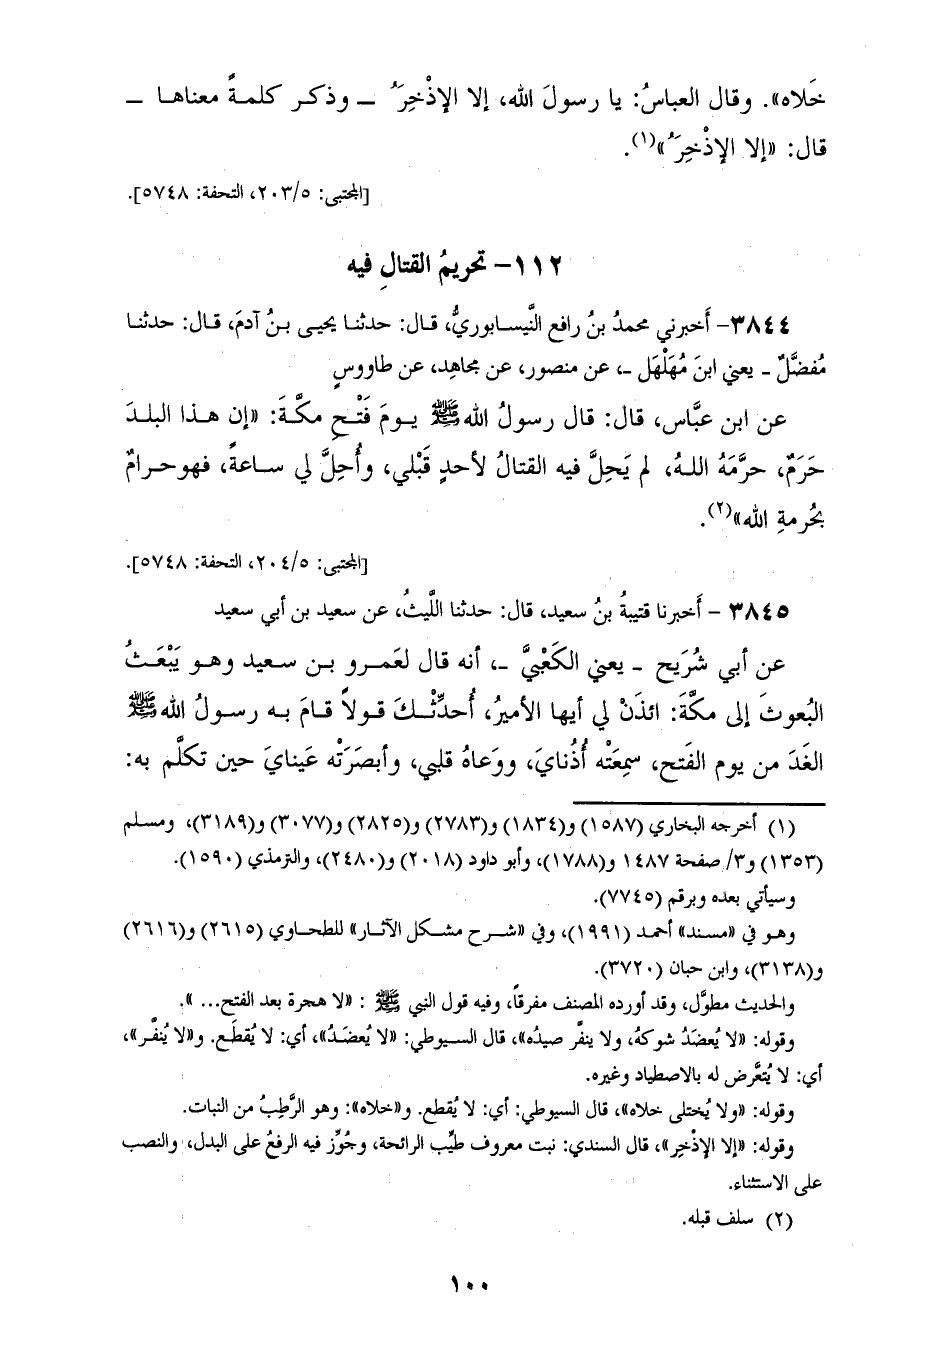 خَلاه». وقال العباسُ: يا رسولَ الله، إلا الإذْخِرَُ ــ وذكر كلمةً معناها ــ
قال: «إلا الإذْخِرَُ»(١).
[المجتبى: ٢٠٣/٥، التحفة: ٥٧٤٨].
١١٢- تحريمُ القتالِ فيه
٣٨٤٤- أَخبرني محمدُ بنُ رافع النَّيسابوريُّ، قال: حدثنا يحيى بنُ آدمَ، قال: حدثنا
مُفضَّلٌ ـ يعني ابنَ مُهَلْهَل ـ، عن منصور، عن مجاهِد، عن طاووسٍ
عن ابن عبَّاس، قال: قال رسولُ الله ﷺ يومَ فَتْحِ مكَّةَ: «إن هذا البلدَ
حَرَمٌ، حرَّمَهُ اللهُ، لم يَحِلَّ فيه القتالُ لأحدٍ قَبْلي، وأُحِلَّ لي ساعةً، فهو حرامٌ
بحُرمةِ الله»(٢).
[المجتبى: ٢٠٤/٥، التحفة: ٥٧٤٨].
٣٨٤٥ - أَخبرنا قتيبةُ بنُ سعيد، قال: حدثنا اللَّيثُ، عن سعيد بن أبي سعيد
عن أبي شُرَيح ـ يعني الكَعْبيَّ ـ، أنه قال لعَمرو بن سعيد وهو يَبْعَثُ
البُعوثَ إلى مكَّةَ: ائذَنْ لي أيها الأميرُ، أُحدِّثْكَ قولاً قامَ به رسولُ الله ﷺ
الغَدَ من يوم الفَتح، سمِعَتْه أُذُنايَ، ووَعاهُ قلبي، وأبصَرَتْه عَينايَ حين تكلَّم به:
(١) أخرجه البخاري (١٥٨٧) و(١٨٣٤) و(٢٧٨٣) و(٢٨٢٥) و(٣٠٧٧) و(٣١٨٩)، ومسلم
(١٣٥٣) و٣/ صفحة ١٤٨٧ و(١٧٨٨)، وأبو داود (٢٠١٨) و(٢٤٨٠)، والترمذي (١٥٩٠).
وسيأتي بعده وبرقم (٧٧٤٥).
وهو في «مسند» أحمد (١٩٩١)، وفي «شرح مشكل الآثار» للطحاوي (٢٦١٥) و(٢٦١٦)
و(٣١٣٨)، وابن حبان (٣٧٢٠).
والحديث مطوَّل، وقد أورده المصنف مفرقاً، وفيه قول النبي ﷺ : «لا هجرة بعد الفتح... ».
وقوله: «لا يُعضَدُ شوكهُ، ولا ينفَّر صيدُه»، قال السيوطي: «لا يُعضَدُ»، أي: لا يُقطَع. و«لا يُنفَّر»،
أي: لا يُتعَّرض له بالاصطياد وغيره.
وقوله: «ولا يُختلى خلاه»، قال السيوطي: أي: لا يُقطع. و«خلاه»: وهو الرَّطِبُ من النبات.
وقوله: «إلا الإذْخِر»، قال السندي: نبت معروف طيِّب الرائحة، وجُوِّز فيه الرفعُ على البدل، والنصب
على الاستثناء.
(٢) سلف قبله.
١٠٠